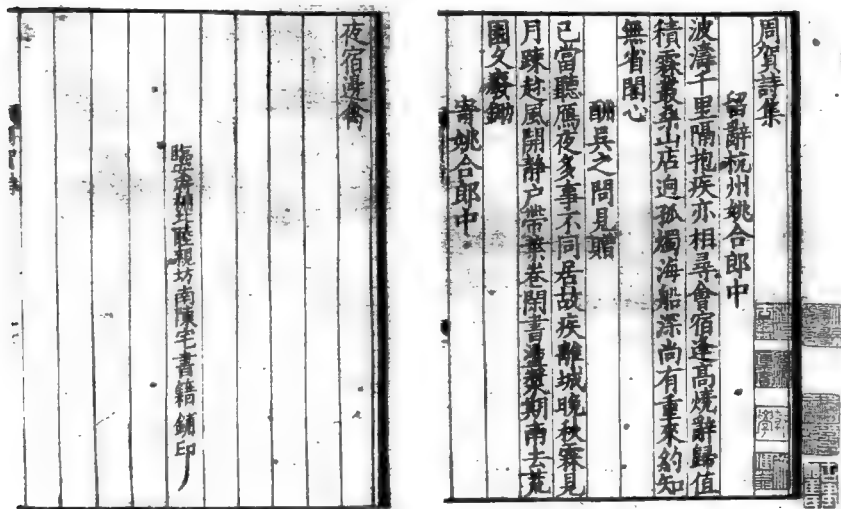 周賀詩集
留辭杭州姚合郎中
波濤千里隔抱疾亦相尋會宿逢高燒辭歸值
積霖叢桑山店迥孤燭海船深尚有重來約知
無省閣心
酬吳之問見贈
已當聽鴈夜多事不同居故疾離城晚秋霖見
月疎趂風開静户帶葉卷閑書盪槳期南去荒
園久廢鋤
寄姚合郎中
夜宿邊禽
臨安府棚北睦親坊南陳宅書籍鋪印